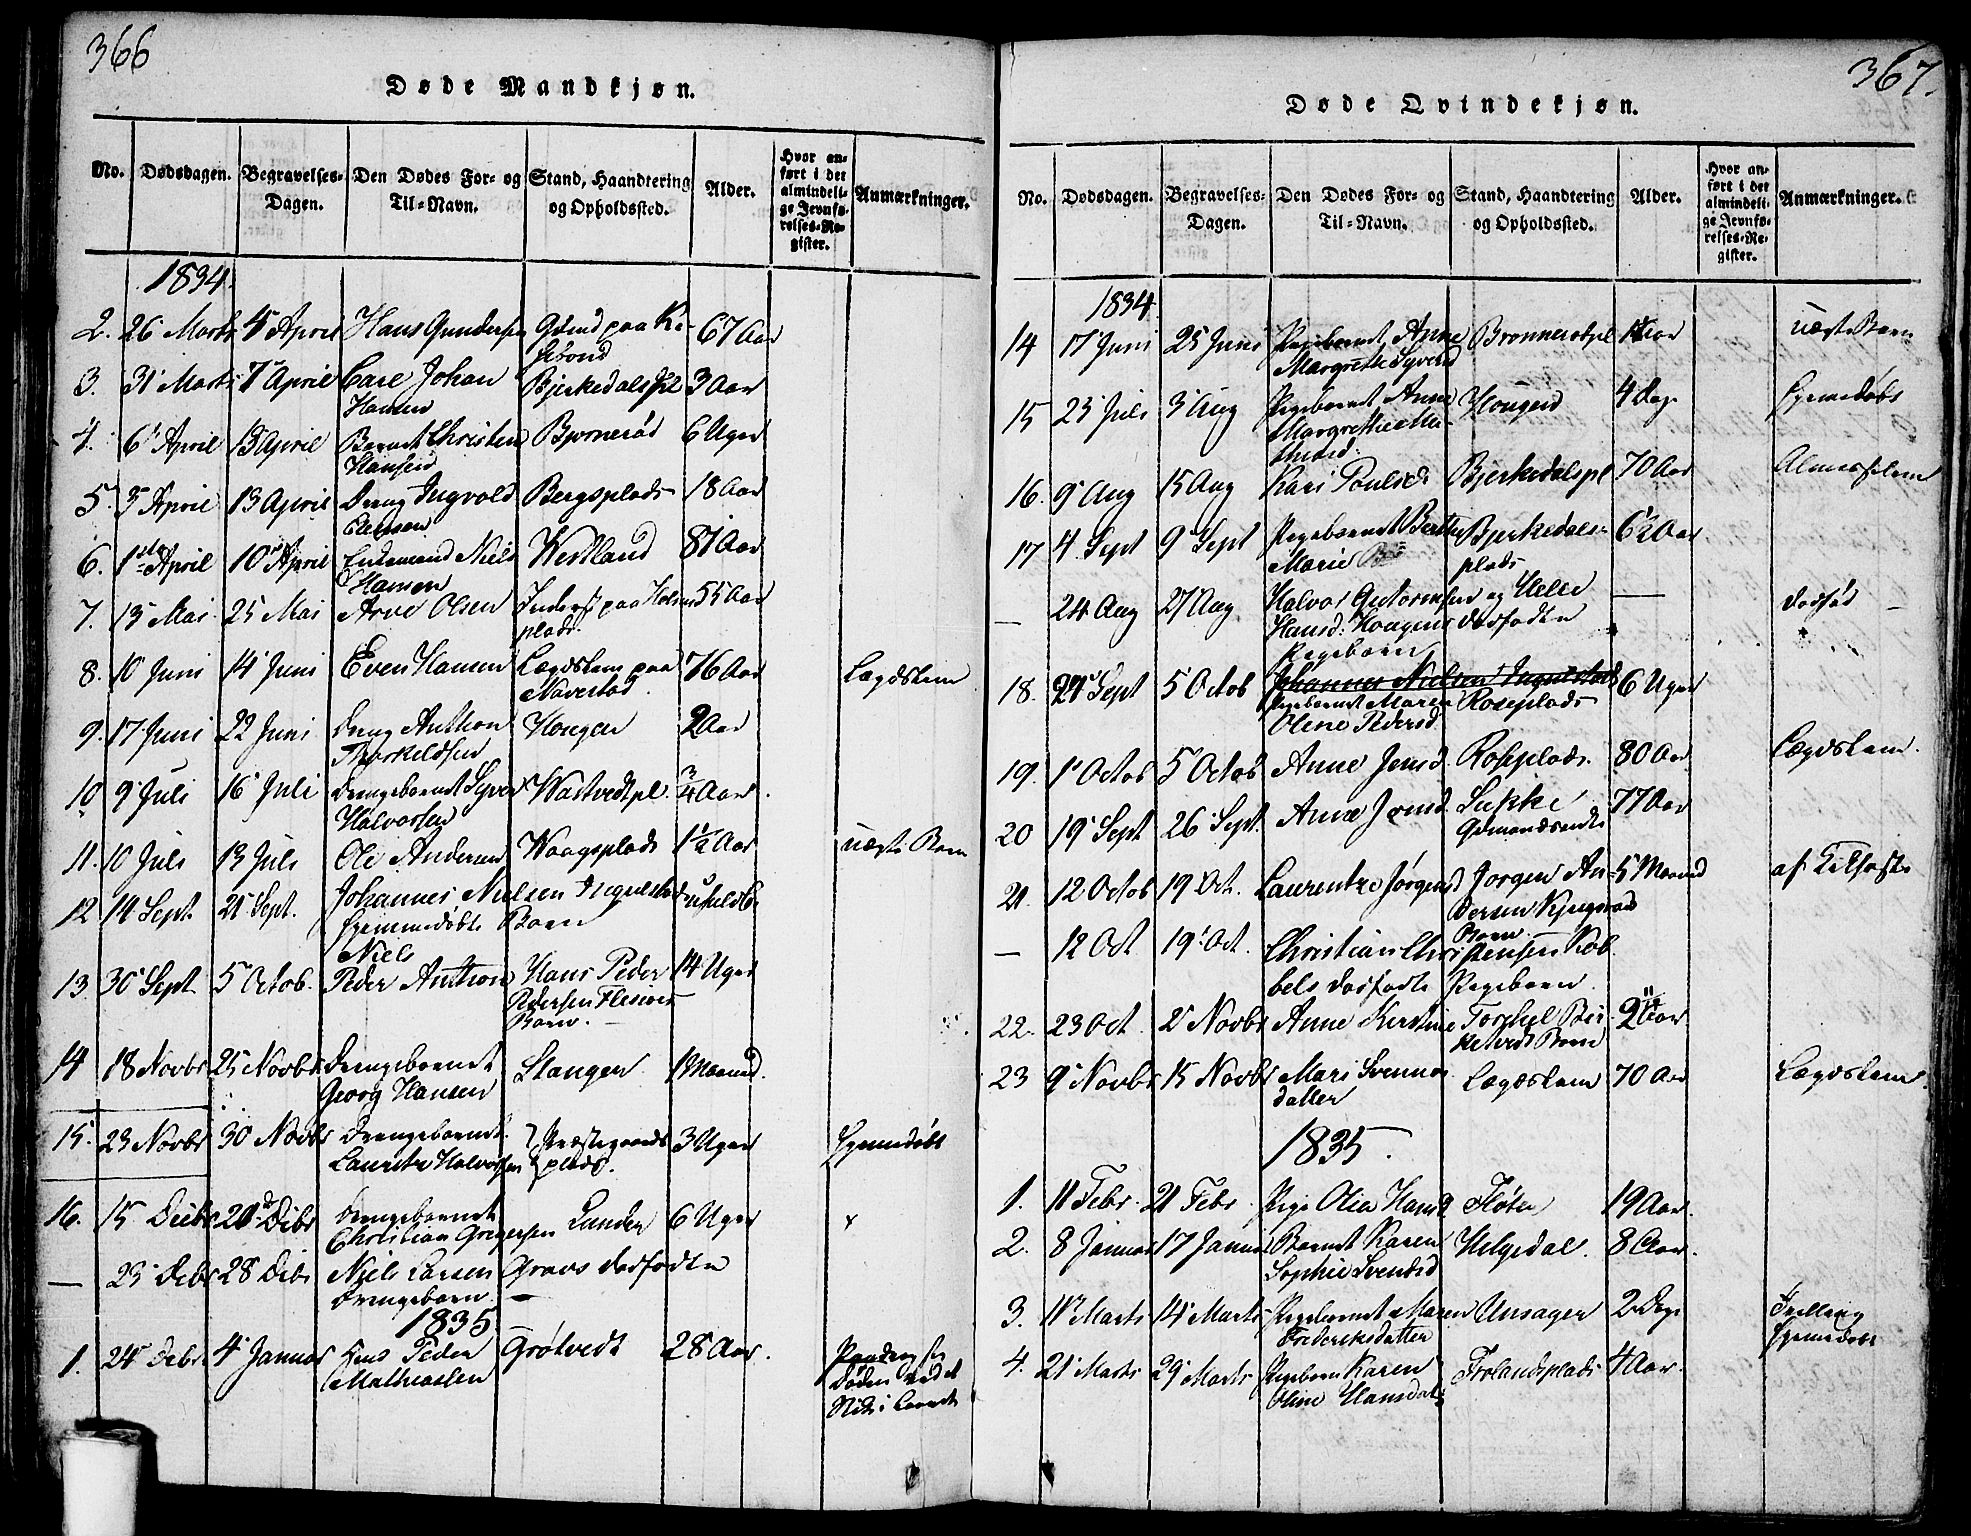 366
Døde Mandkjøn.
No. Dødsdagen. Begravelses-Dagen. Den Dødes For- og Til-Navn. Stand, Haandtering og Opholdssted. Alder. Hvor anført i det almindelige Jevnførelses-Register. Anmærkninger.
1834.
2. 26 Marts 4 April Hans Gundersen 67 Aar
3. 31 Marts 7 April Carl Johan Bjerkedalspl 3 Aar
Hansen
4. 6 April 13 April Barnet Christen Bjørnerød 6 Uger
Hansen
5. 5 April 13 April Dreng Ingvold Bergsplads 18 Aar
6. 1ste April 10 April Enkemand Niels Westland 81 Aar
Hansen
7. 15 Mai 25 Mai Arve Olsen Inderst paa 55 Aar
plads.
8. 10 Juni 14 Juni Even Hansen Lægdslem paa 76 Aar Lægdslem
Navestad
9. 17 Juni 22 Juni Dreng Anthon Hougen 2 Aar
Thorkeldsen
10 9 Juli 16 Juli Drengebarnet Syver Wastvedtpl. 3/4 Aar
Halvorsen
11. 10 Juli 13 Juli Ole Andersen Waagsplads 1 1/2 Aar uægte Barn
12 19 Sept. 21 Sept. Johannes Nielsen
hjemmedøbte Barn
Niels
13. 30 Sept 5 Octob. Peder Anthon Hans Peder 14 Uger
Pedersen
Barn.
14 18 Novbr 25 Novbr Drengebarnet Stangen 1 Maaned.
Georg Hansen
15. 23 Novbr 30 Novbr Drengebarnet Præstegaards 3 Uger hjemmedøbt
Lauritz Halvorsen plads.
16. 15 Decbr Drengebarnet Lunden 6 Uger
Christian Gregersen
— 23 Debr 28 Debr Niels Larsen Gravs dødfødte
Drengebarn —
1835
1. 24 Debr 4 Januar Peder Grøtvedt 28 Aar.
Mathiassen
367.
Døde Qvindekjøn.
No. Dødsdagen. Begravelses-Dagen. Den Dødes For- og Til-Navn. Stand, Haandtering og Opholdssted. Alder. Hvor anført i det almindelige Jevnførelses-Register. Anmærkninger.
1834.
14 17 Juni 25 Juni Pigebarnet Anne uægte Barn
Margrethe Syversd
15 23 Juli 3 Aug Pigebarnet Anne Hougen 4 Dage hjemmedøbt
Margrethe
16. 9 Aug 15 Aug Kari Poulsd Bjerkedalspl 70 Aar Almisselem
17 4 Sept 9 Sept Pigebarnet Berthe Bjerkedals- 6 1/2 Aar
Marie plads
— 24 Aug 27 Aug Halvor Guttormsen og Helle — dødfød
Hansd: Hougens dødfødte
Pigebarn
18. 27 Sept 5 Octob Johannes Nielsen 6 Uger
Pigebarnet Maren Roseplads
Oline Pedersd
19. 1 Octob 5 Octob Anne Jensd Roseplads. 80 Aar Lægdslem.
20 19 Sept 26 Sept. Anne Jensd. 77 Aar
Gdmandsenke
21. 12 Octob 19 Oct. Laurentze Jørgensd Jørgen An- 5 Maaned
dersen
Barn
— 12 Oct 19 Oct. Christian Christensen Kob
bels dødfødte Pigebarn.
22. 23 Oct. 2 Novbr Anne Kirstine Torchel
Barn
23 9 Novbr 15 Novbr Mari Svennes Lægdslem 70 Aar Lægdslem.
datter
1835.
1. 11 Febr. 21 Febr. Pige Olea Hansd Fløten 19 Aar.
2. 8 Januar 17 Januar Barnet Karen Helgedal. 8 Aar.
Sophie Svendsd
3. 11 Marts 14 Marts Pigebarnet Maren Unsager 2 Dage Tvilling
Frederiksdatter hjemmedøbt
4. 21 Marts 29 Marts Pigebarn Karen Frolandsplads 4 Aar.
Oline Hansdat